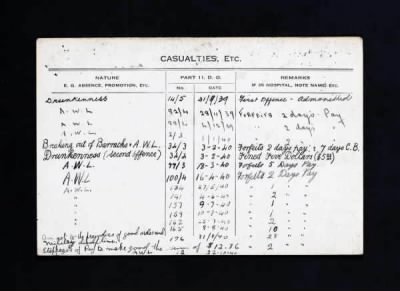 CASUALTIES, ETC.
NATURE PART II. D. O. REMARKS
E. G. ABSENCE, PROMOTION, ETC. No. DATE IF IN HOSPITAL, NOTE NAME, ETC.
Drunkenness 14/5 21/9/39 First Offence - Admonished
A.W.L. 92/4 28/11/39 Forfeits 2 days Pay
A.W.L. 99/4 6/12/39 " 2 days "
A.W.L. 2/3 1/40 " 1 " "
Breaking out of Barracks & A.W.L. 34/3 3-2-40 Forfeits 2 days pay & 7 days C.B.
Drunkenness (second offence) 34/2 3-2-40 Fined Five Dollars ($5.00)
A.W.L. 77/3 18-3-40 Forfeits 5 days Pay
A.W.L. 100/4 16-4-40 Forfeits 2 Days Pay
A.W.L. 134 /40 " 1 " "
" 141 " 2 " "
" 157 9-7-40 " 1 " "
" 159 -7-40 " 1 " "
" 162 -7-40 " 2 " "
" 165 8-8-40 " 10 " "
176 21/8/40 " 28 " "
to the prejudice of good order and
military discipline
Stoppages of Pay to make good the sum of $12.86 " 2 " "
A.W.L. -10-40